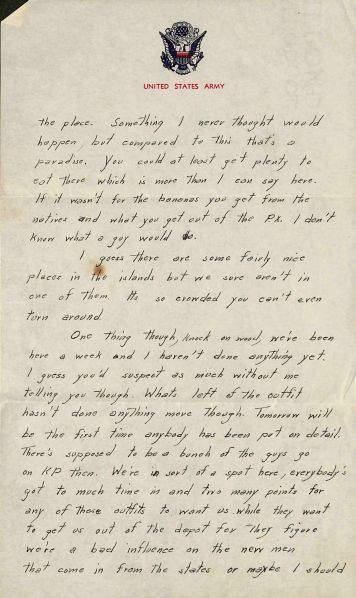 UNITED STATES ARMY
the place. Something I never thought would
happen, but compared to this that's a
paradise. You could at least get plenty to
eat there which is more than I can say here.
If it wasn't for the bananas you get from the
natives and what you get out of the Px. I don't
know what a guy would do.
I guess there are some fairly nice
places in the islands but we sure aren't in
one of them. Its so crowded you can't even
turn around.
One thing though, knock on wood, we've been
here a week and I haven't done anything yet.
I guess you'd suspect as much without me
telling you though. Whats left of the outfit
hasn't done anything more though. Tomorrow will
be the first time anybody has been put on detail.
There's supposed to be a bunch of the guys go
on KP then. We're in sort of a spot here, everybody's
got to much time in and two many points for
any of those outfits to want us while they want
to get us out of the depot for they figure
we're a bad influence on the new men
that come in from the states or maybe I should